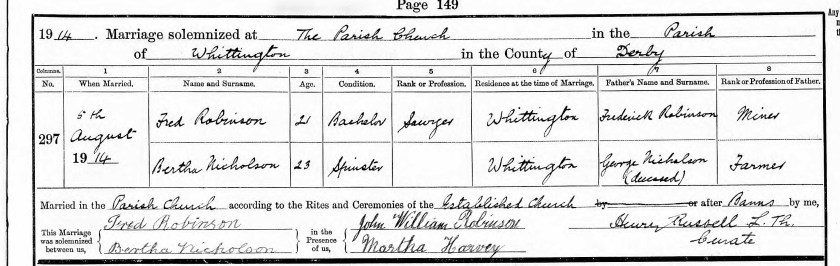 Page 149
1914. Marriage solemnized at The Parish Church in the Parish
of Whittington in the County of Derby
Columns. 1 2 3 4 5 6 7 8
No. When Married. Name and Surname. Age. Condition. Rank or Profession. Residence at the time of Marriage. Father's Name and Surname. Rank or Profession of Father.
297 5th August 1914
Fred Robinson 21 Bachelor Whittington Frederick Robinson Miner
Bertha Nicholson 23 Spinster Whittington George Nicholson (deceased) Farmer
Married in the Parish Church according to the Rites and Ceremonies of the Established Church by or after Banns by me,
This Marriage was solemnized between us, Fred Robinson Bertha Nicholson in the Presence of us, John William Robinson Martha Harvey Henry Russell L. Th. Curate
Any